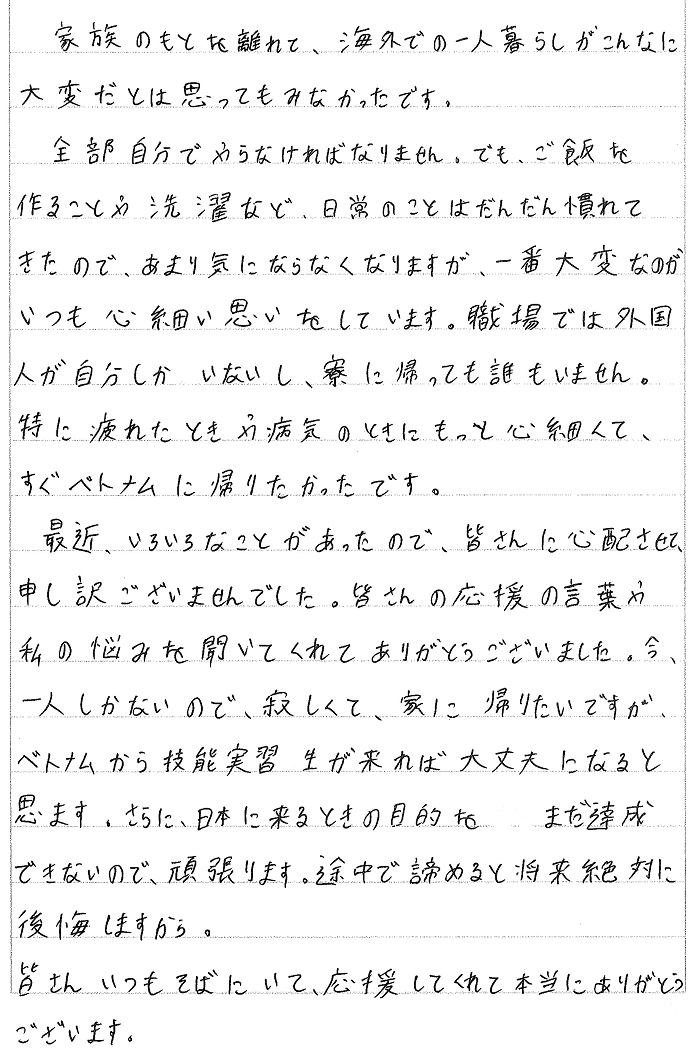 家族のもとを離れて、海外での一人暮らしがこんなに
大変だとは思ってもみなかったです。
全部自分でやらなければなりません。でも、ご飯を
作ることや洗濯など、日常のことはだんだん慣れて
きたので、あまり気にならなくなりますが、一番大変なのが
いつも心細い思いをしています。職場では外国
人が自分しかいないし、寮に帰っても誰もいません。
特に疲れたときや病気のときにもっと心細くて、
すぐベトナムに帰りたかったです。
最近、いろいろなことがあったので、皆さんに心配させて、
申し訳ございませんでした。皆さんの応援の言葉や
私の悩みを聞いてくれてありがとうございました。今、
一人しかないので、寂しくて、家に帰りたいですが、
ベトナムから技能実習生が来れば大丈夫になると
思ます。さらに、日本に来るときの目的を まだ達成
できないので、頑張ります。途中で諦めると将来絶対に
後悔しますから。
皆さんいつもそばにいて、応援してくれて本当にありがとう
ございます。